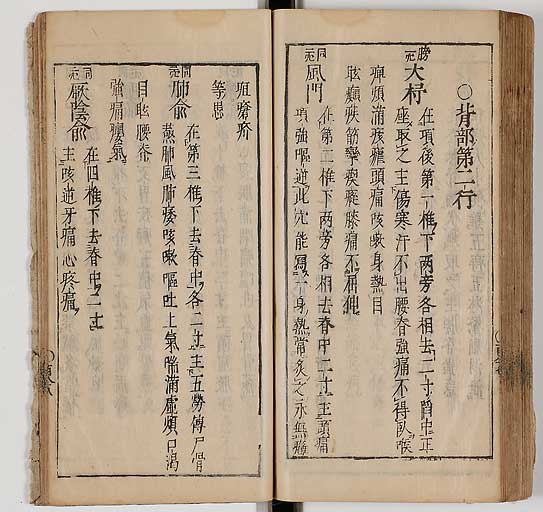 ○背部第二行
膀 大杼 在項後第一椎下兩旁各相去二寸陷中正
座取之主傷寒汗不出腰脊強痛不得臥喉
痺煩滿痎瘧頭痛咳嗽身熱目
眩癲疾筋攣瘈瘲膝痛不屈伸
同 風門 在第二椎下兩旁各相去脊中二寸主頭痛
項強嘔逆此穴能瀉一身熱常灸之永無癰
疽瘡疥
等患
同 肺俞 在第三椎下去脊中各二寸主五勞傳尸骨
蒸肺風肺痿咳嗽嘔吐上氣喘滿虛煩口渴
目眩腰脊
強痛癭氣
同 厥陰俞 在四椎下去脊中二寸
主咳逆牙痛心疼痛